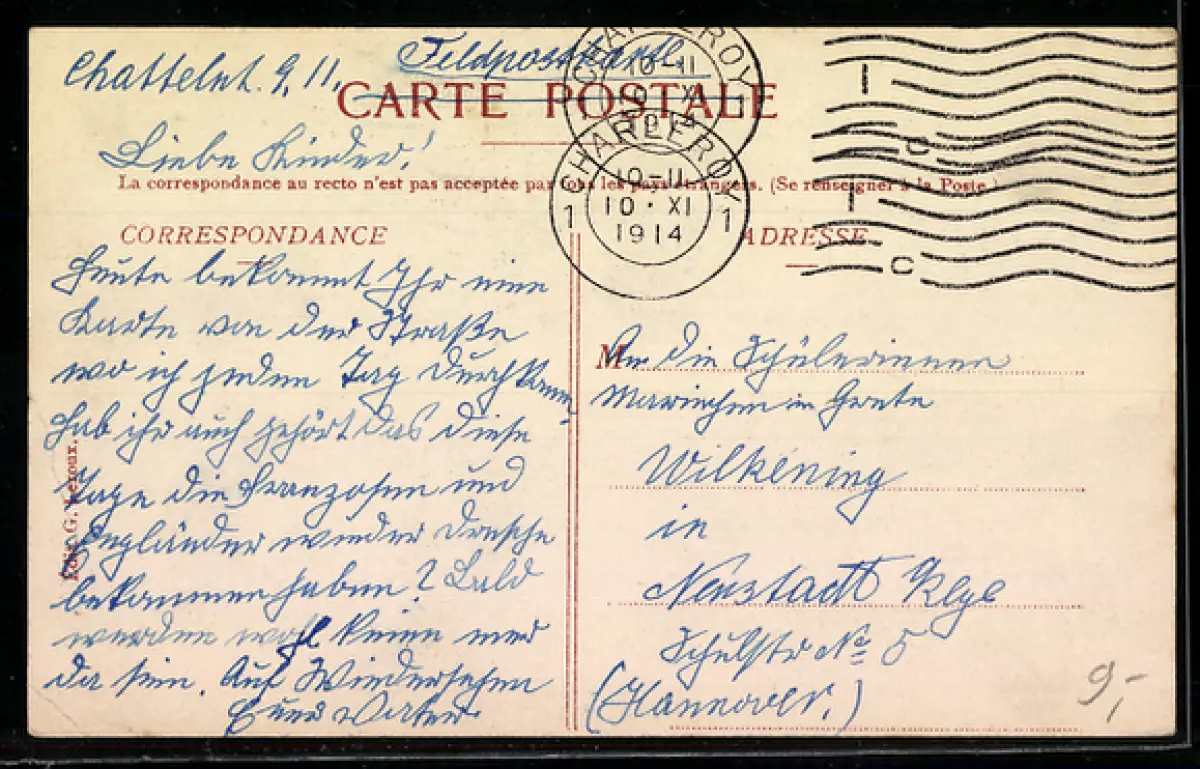 Chattelet. 9. 11.
Feldpostkarte
CARTE POSTALE
Liebe Kinder!
La correspondance au recto n'est pas acceptée par tous les pays étrangers. (Se renseigner à la Poste.)
CHARLEROY
10-11
10 · XI
1914
1 1
CORRESPONDANCE
Heute bekommt Ihr eine
Karte von der Straße
wo ich jeden Tag durchkomme
hab ihr auch gehört das diese
Tage die Franzosen und
Engländer wieder Dresche
bekommen haben? Bald
werden wohl keine mer
da sein. Auf Wiedersehen
Euer Vater
G.
ADRESSE
M
An die Schülerinnen
Mariechen Grete
Wilkening
in
Neustadt Rbge
Schulstr No 5
(Hannover.)
9,-